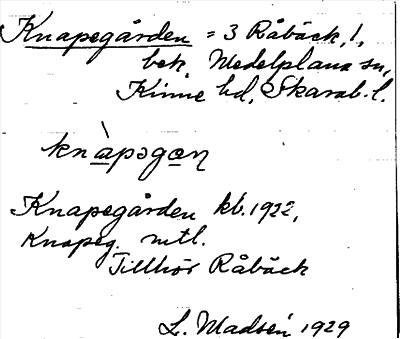 Knapegården = 3 Råbäck, 1,
bek. Medelplana sn,
Kinne hd, Skarab. l.
knàpəgɷn
Knapegården kb. 1922,
Knapeg. mtl.
Tillhör Råbäck
L. Madsén 1929